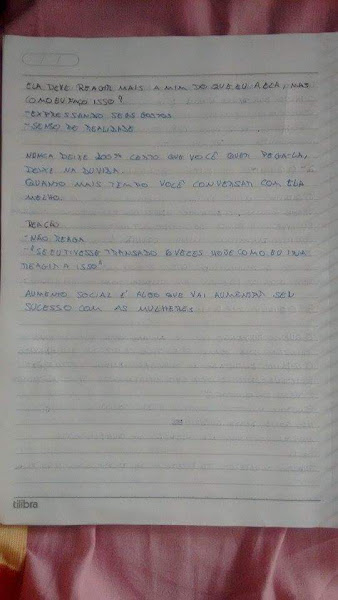 ELA DEVE REAGIR MAIS A MIM DO QUE EU A ELA, MAS
COMO EU FAÇO ISSO?
- EXPRESSANDO SEUS GOSTOS
- SENSO DE REALIDADE
NUNCA DEIXE 100% CERTO QUE VOCÊ QUER PEGA-LA,
DEIXE NA DUVIDA.
QUANTO MAIS TEMPO VOCÊ CONVERSAR COM ELA
MELHO.
REAÇÃO
- NÃO REAGA
- "SE EU TIVESSE TRANSADO 8 VECES HOJE COMO EU IRIA
REAGIR A ISSO"
AUMENTO SOCIAL É ALGO QUE VAI AUMENTAR SEU
SUCESSO COM AS MULHERES
tilibra